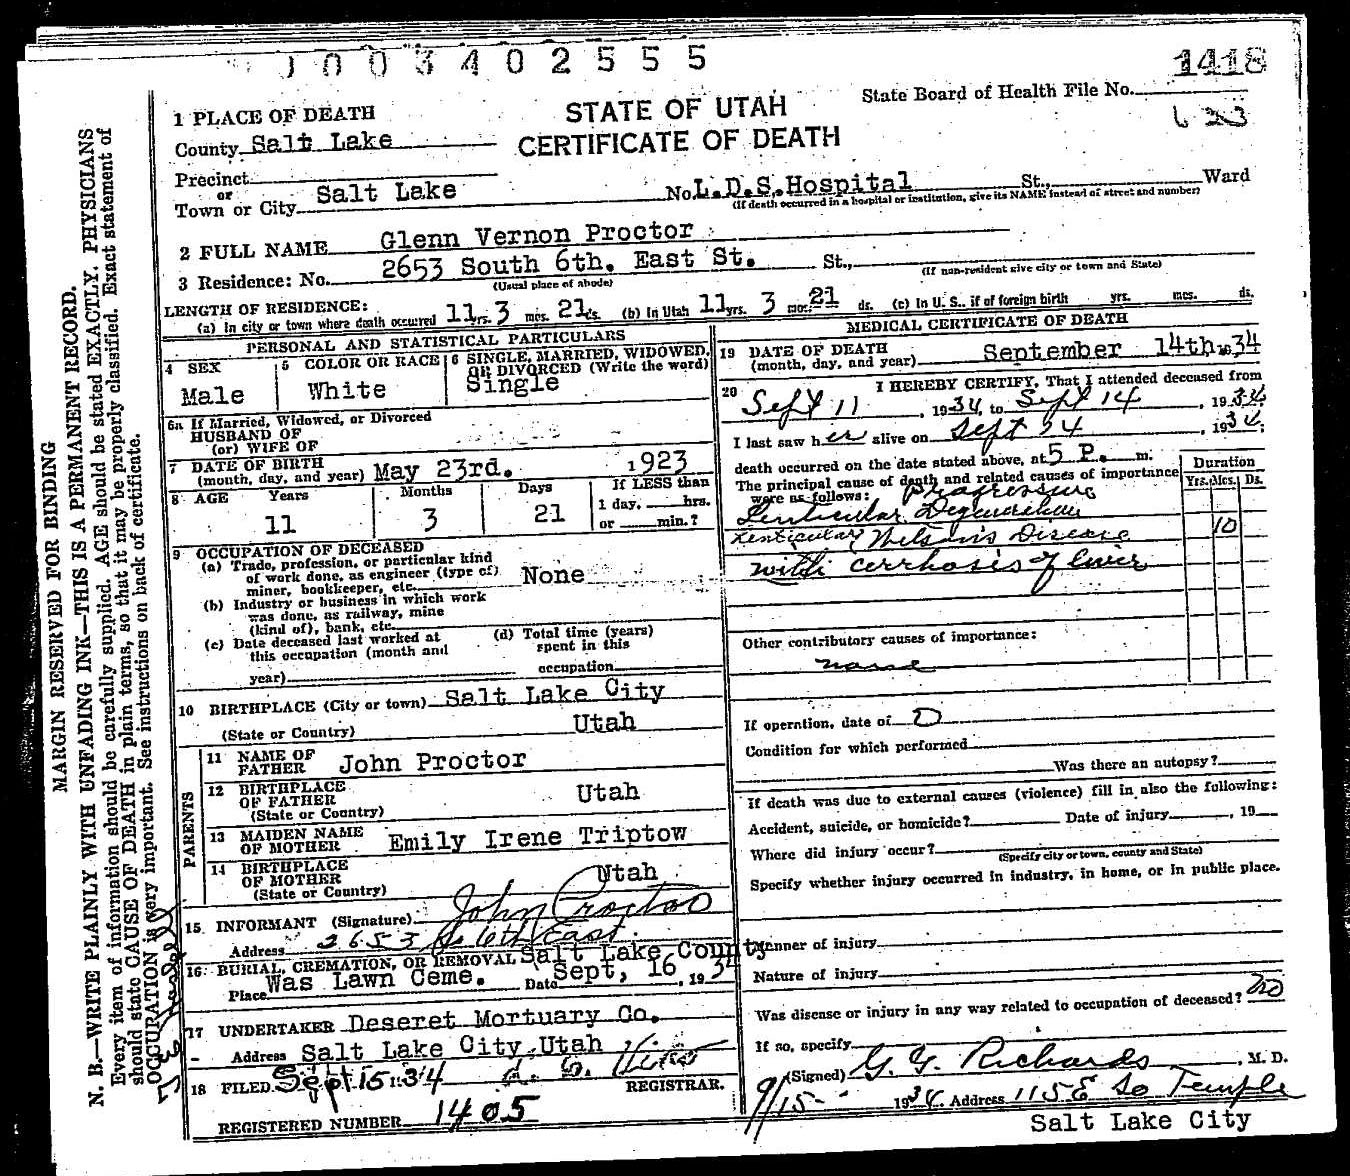 0003402555
1418
STATE OF UTAH
CERTIFICATE OF DEATH
State Board of Health File No.
1 PLACE OF DEATH
County Salt Lake
Precinct
or
Town or City Salt Lake No. L.D.S. Hospital St., Ward
(If death occurred in a hospital or institution, give its NAME instead of street and number)
2 FULL NAME Glenn Vernon Proctor
3 Residence: No. 2653 South 6th. East St. St.,
(Usual place of abode) (If non-resident give city or town and State)
LENGTH OF RESIDENCE:
(a) In city or town where death occurred 11 yrs. 3 mos. 21 ds. (b) In Utah 11 yrs. 3 mos. 21 ds. (c) In U. S., if of foreign birth yrs. mos. ds.
PERSONAL AND STATISTICAL PARTICULARS
4 SEX Male
5 COLOR OR RACE White
6 SINGLE, MARRIED, WIDOWED, OR DIVORCED (Write the word) Single
6a If Married, Widowed, or Divorced
HUSBAND OF
(or) WIFE OF
7 DATE OF BIRTH
(month, day, and year) May 23rd. 1923
8 AGE Years Months Days If LESS than
11 3 21 1 day, hrs.
or min.?
9 OCCUPATION OF DECEASED
(a) Trade, profession, or particular kind
of work done, as engineer (type of)
miner, bookkeeper, etc. None
(b) Industry or business in which work
was done, as railway, mine
(kind of), bank, etc.
(c) Date deceased last worked at
this occupation (month and
year)
(d) Total time (years)
spent in this
occupation
10 BIRTHPLACE (City or town) Salt Lake City
(State or Country) Utah
PARENTS
11 NAME OF
FATHER John Proctor
12 BIRTHPLACE
OF FATHER Utah
(State or Country)
13 MAIDEN NAME
OF MOTHER Emily Irene Triptow
14 BIRTHPLACE
OF MOTHER Utah
(State or Country)
15 INFORMANT (Signature) John Proctor
Address 2653 So 6th East
16 BURIAL, CREMATION, OR REMOVAL Salt Lake County
Place Was Lawn Ceme. Date Sept, 16, 1934
17 UNDERTAKER Deseret Mortuary Co.
Address Salt Lake City, Utah
18 FILED Sept 15 1934
REGISTRAR.
REGISTERED NUMBER 1405
MEDICAL CERTIFICATE OF DEATH
19 DATE OF DEATH
(month, day, and year) September 14th 1934
20 I HEREBY CERTIFY, That I attended deceased from
Sept 11, 1934, to Sept 14, 1934.
I last saw her alive on Sept 14, 1934;
death occurred on the date stated above, at 5 P. m.
The principal cause of death and related causes of importance
were as follows: Progressive
Lenticular Degeneration
Lenticular Wilson's Disease
with cerrhosis of liver
Duration
Yrs. Mos. Ds.
10
Other contributory causes of importance:
none
If operation, date of O
Condition for which performed
Was there an autopsy?
If death was due to external causes (violence) fill in also the following:
Accident, suicide, or homicide? Date of injury, 19
Where did injury occur?
(Specify city or town, county and State)
Specify whether injury occurred in industry, in home, or in public place.
Manner of injury
Nature of injury
Was disease or injury in any way related to occupation of deceased? no
If so, specify
(Signed) G. G. Richards, M. D.
9/15 1934. Address 115 E So Temple
Salt Lake City
MARGIN RESERVED FOR BINDING
N. B.—WRITE PLAINLY WITH UNFADING INK—THIS IS A PERMANENT RECORD.
Every item of information should be carefully supplied. AGE should be stated EXACTLY. PHYSICIANS
should state CAUSE OF DEATH in plain terms, so that it may be properly classified. Exact statement of
OCCUPATION is very important. See instructions on back of certificate.